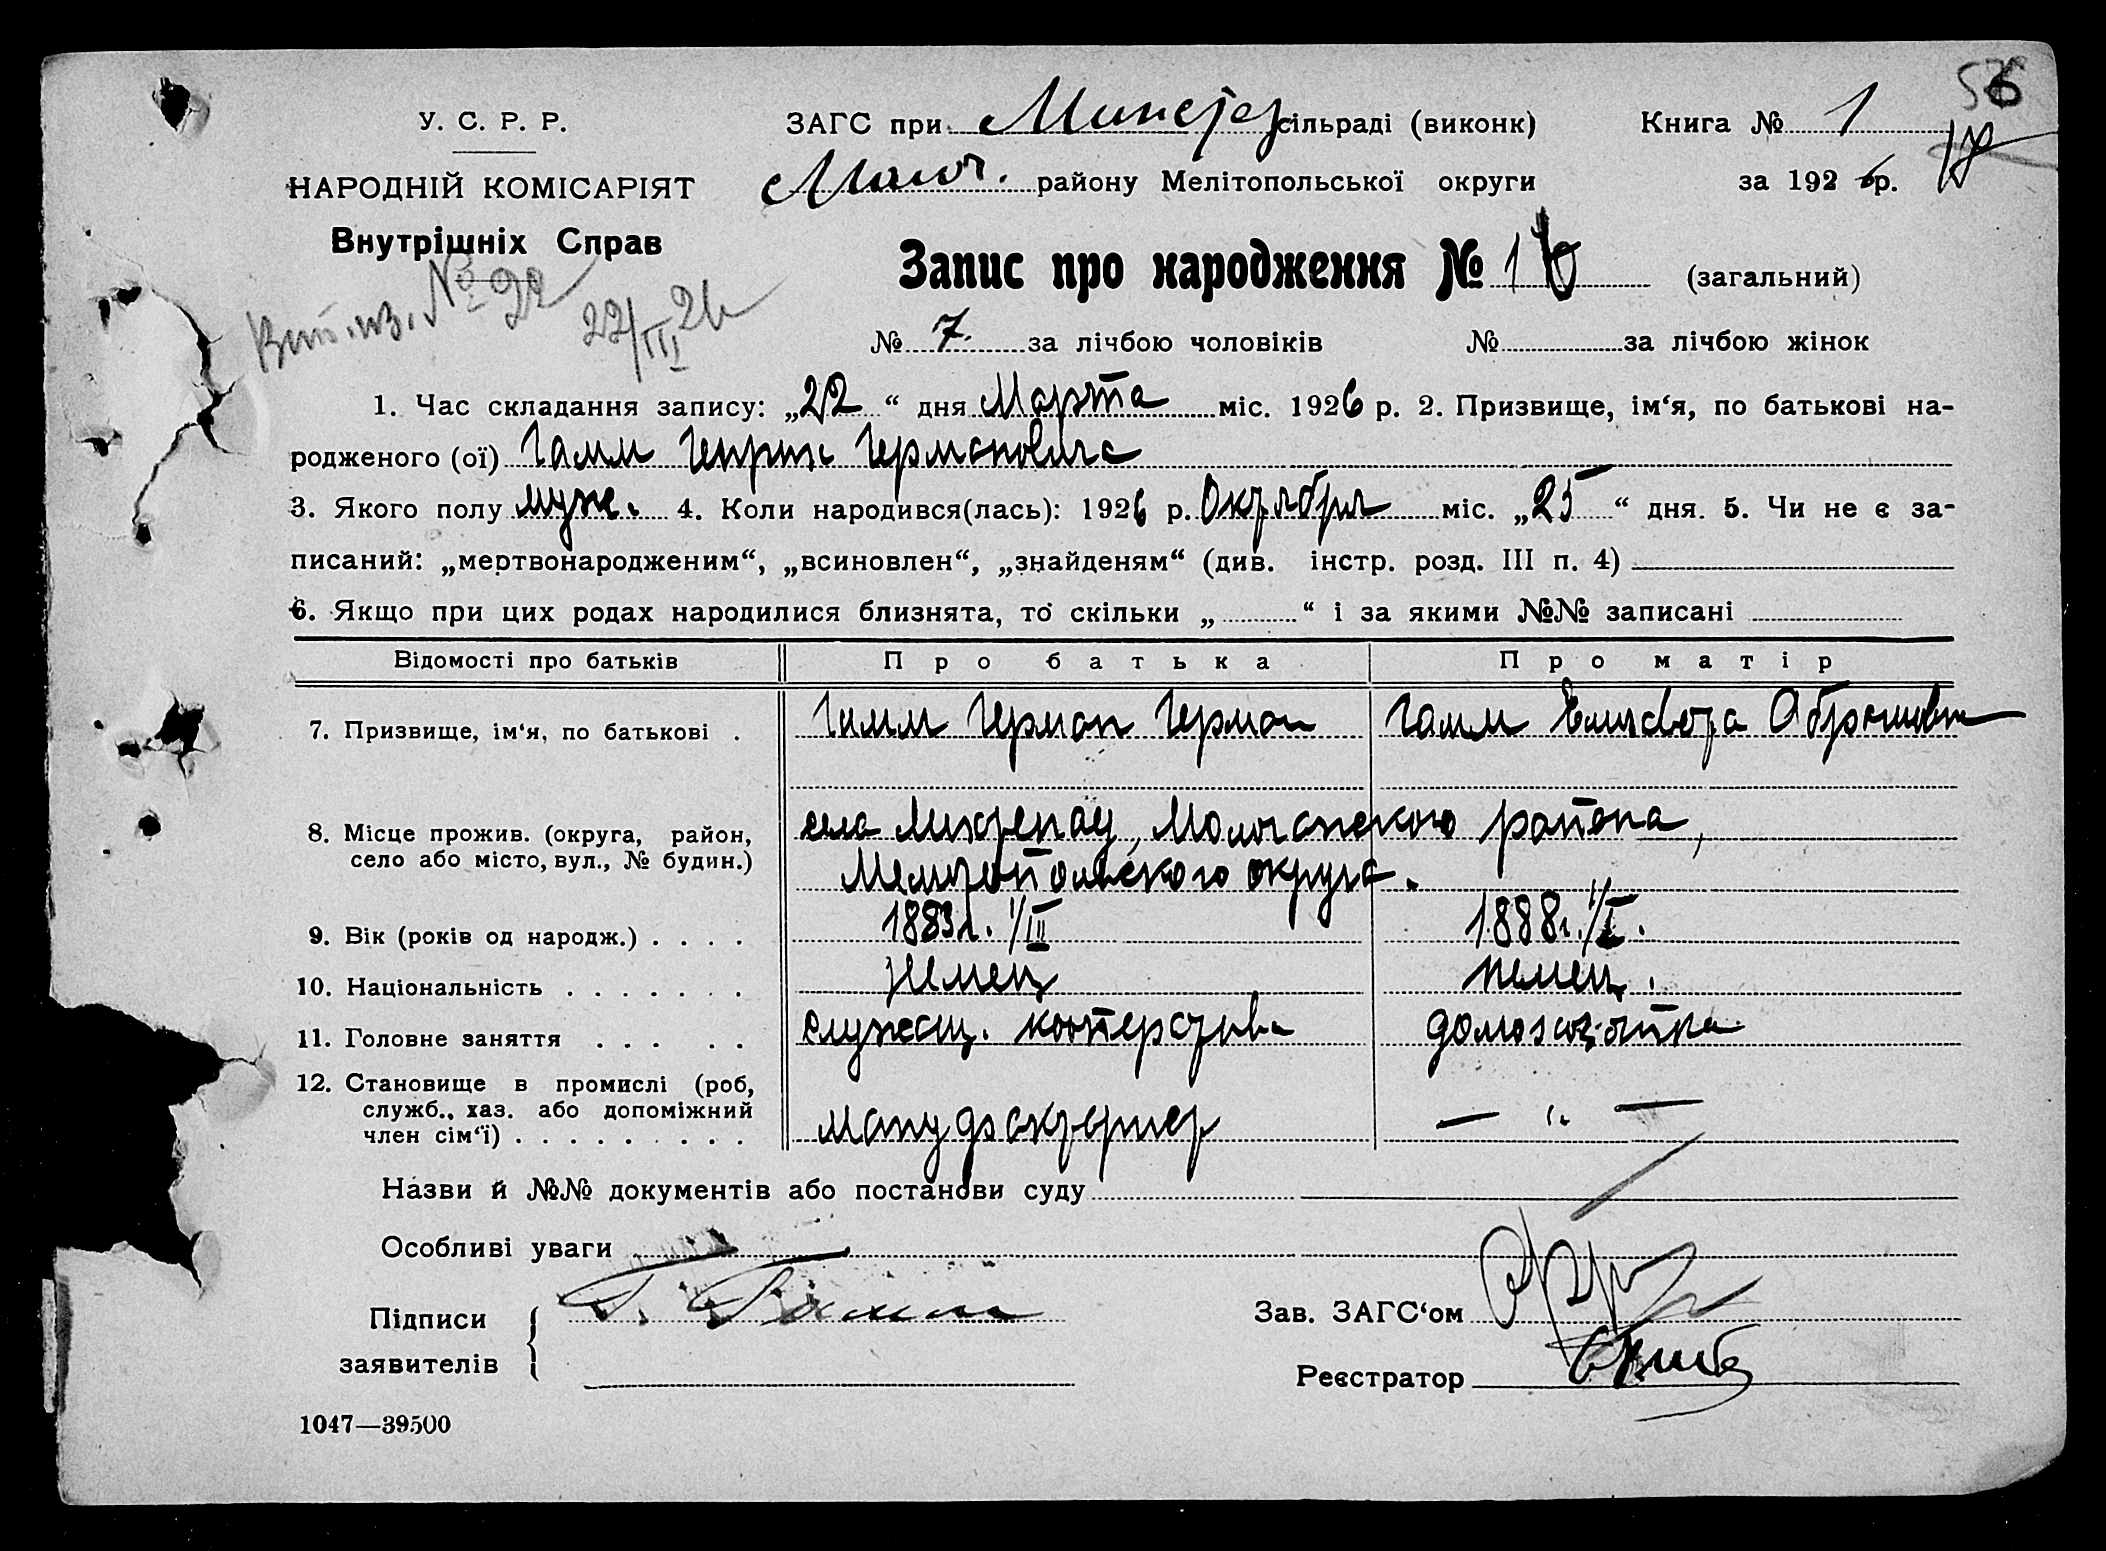 56
У. С. Р. Р.
ЗАГС при Минстер сільраді (виконк)
Книга № 1
НАРОДНІЙ КОМІСАРІЯТ
Молоч. району Мелітопольської округи
за 1926 р.
Внутрішніх Справ
Запис про народження № 16 (загальний)
№ 22 22/III 26
№ 7. за лічбою чоловіків № за лічбою жінок
1. Час складання запису: „22“ дня Марта міс. 1926 р. 2. Призвище, ім‘я, по батькові на-
родженого (ої) Гамм Генрих Германовича
3. Якого полу муж. 4. Коли народився(лась): 1926 р. Октября міс. „25“ дня. 5. Чи не є за-
писаний: „мертвонародженим“, „всиновлен“, „знайденям“ (див. інстр. розд. III п. 4)
6. Якщо при цих родах народилися близнята, то скільки „ “ і за якими №№ записані
Відомості про батьків Про батька Про матір
7. Призвище, ім‘я, по батькові . Гамм Герман Герман Гамм Елисвета Абрамовн
8. Місце прожив. (округа, район, села Лихтенау, Молочанского района,
село або місто, вул., № будин.) Мелитопольского округа.
9. Вік (років од народж.) . . . . 1883г. 1/III 1888г. 1/I.
10. Національність . . . . . . . Немец немец.
11. Головне заняття . . . . . служащ. кооператива домохоз-айка
12. Становище в промислі (роб,
служб., хаз. або допоміжний
член сім‘ї) . . . . . . . . . мануфактурист — „ —
Назви й №№ документів або постанови суду
Особливі уваги
Підписи Г. Гамм
Зав. ЗАГС‘ом
заявителів
Реєстратор
1047—39500